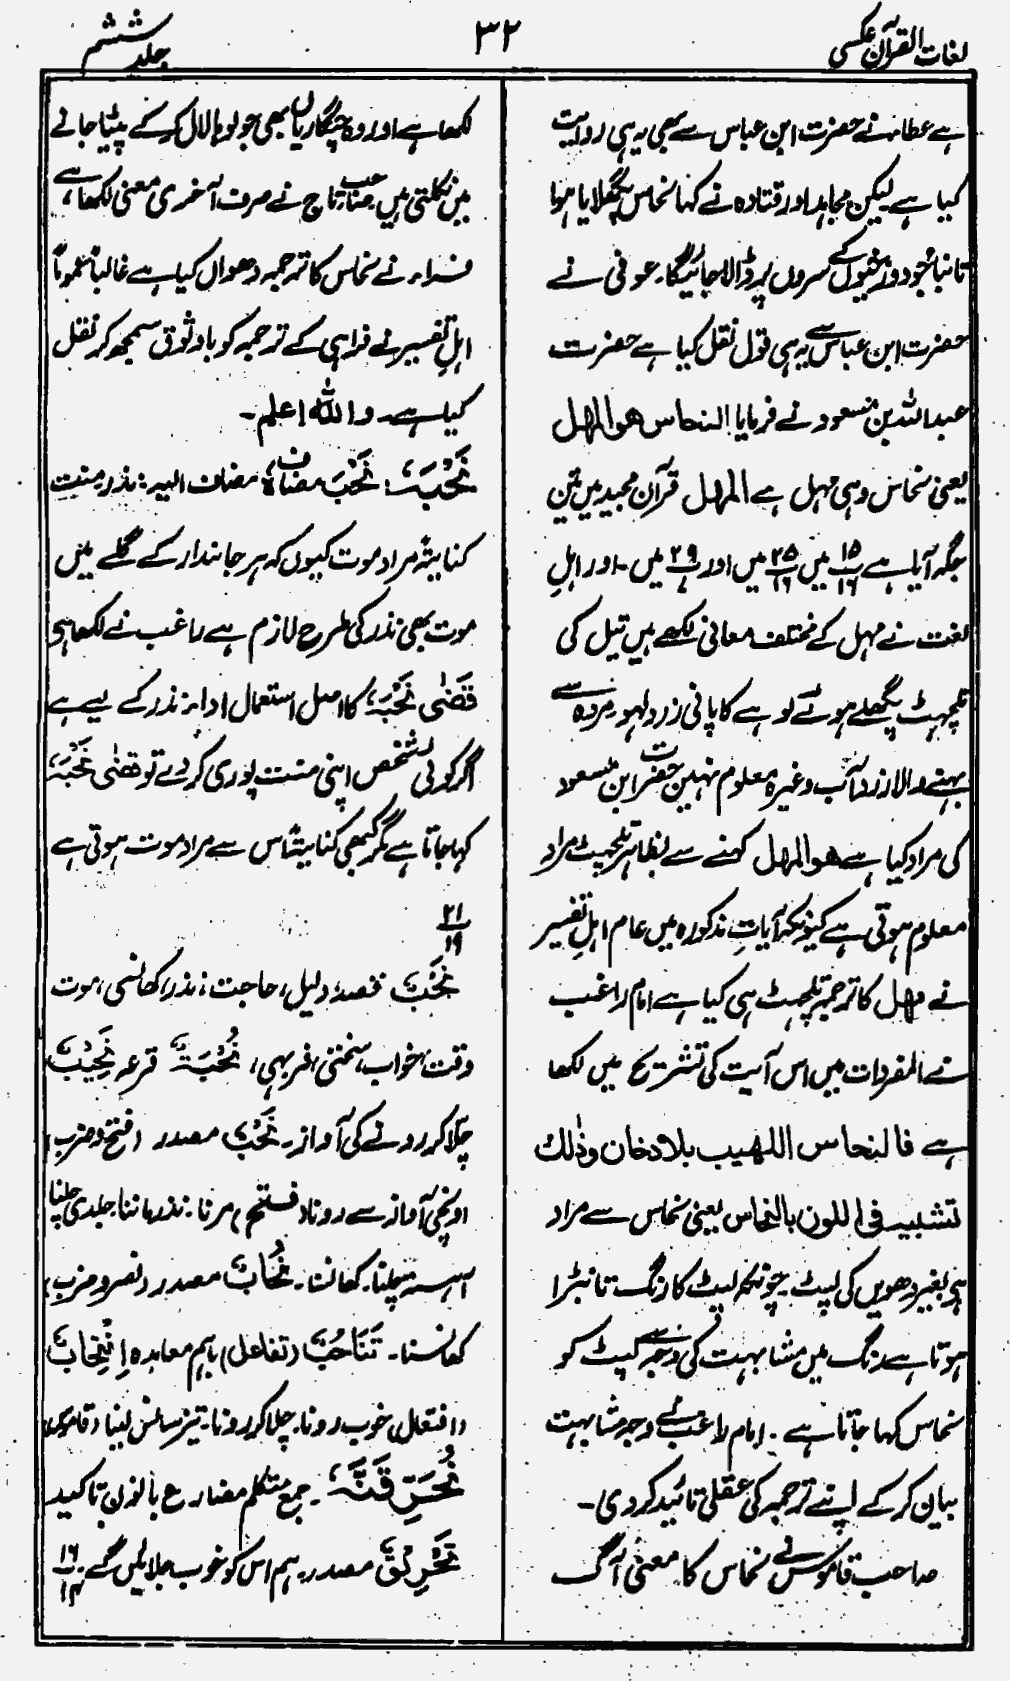 لغات القرآن عکسی
۳۲
جلد ششم
ہے عطاء نے حضرت ابن عباس سے بھی یہ ہی روایت
کیا ہے لیکن مجاہد اور قتادہ نے کہا نحاس پگھلایا ہوا
تانبا جو دوزخیوں کے سروں پر ڈالا جائیگا۔ عوفی نے
حضرت ابن عباس سے یہ ہی قول نقل کیا ہے حضرت
عبداللہ بن مسعود نے فرمایا النحاس ھو المھل
یعنی نحاس وہی مہل ہے المھل قرآن مجید میں تین
جگہ آیا ہے ۱۵/۱۶ میں ۲۵/۱۶ میں اور ۲۹/۷ میں۔ اور اہلِ
لغت نے مہل کے مختلف معانی لکھے ہیں تیل کی
تلچھٹ پگھلے ہوئے لوہے کا پانی زرد لہو۔ مردہ سے
بہنے والا زرد آب وغیرہ معلوم نہیں حضرت ابن مسعود
کی مراد کیا ہے ھو المھل کہنے سے بظاہر تلچھٹ مراد
معلوم ہوتی ہے کیونکہ آیاتِ مذکورہ میں عام اہلِ تفسیر
نے مھل کا ترجمہ تلچھٹ ہی کیا ہے امام راغب
نے المفردات میں اس آیت کی تشریح میں لکھا
ہے فالنحاس اللھیب بلا دخان وذٰلک
تشبیہ فی اللون بالنحاس یعنی نحاس سے مراد
ہی بغیر دھویں کی لپٹ۔ چونکہ لپٹ کا رنگ تانبڑا
ہوتا ہے رنگ میں مشابہت کی وجہ سے لپٹ کو
نحاس کہا جاتا ہے۔ امام راغب نے وجہ مشابہت
بیان کر کے اپنے ترجمہ کی عقلی تائید کر دی۔
صاحب قاموس نے نحاس کا معنی آگ
لکھا ہے اور وہ چنگاریاں بھی جو لوہا لال کر کے پیٹا جانے
میں نکلتی ہیں صاحب تاج نے صرف آخری معنی لکھا ہے،
فراء نے نحاس کا ترجمہ دھواں کیا ہے غالباً عموماً
اہلِ تفسیر نے فراہی کے ترجمہ کو باوثوق سمجھ کر نقل
کیا ہے۔ واللہ اعلم۔
نَحْبَہٗ: نَحْبَ مضاف ہٗ مضاف الیہ: نذر۔ منت
کنایۃً مراد موت کیوں کہ ہر جاندار کے گلے میں
موت بھی نذر کی طرح لازم ہے راغب نے لکھا ہے
قَضٰی نَحْبَہٗ کا اصل استعمال اداء نذر کے لیے ہے
اگر کوئی شخص اپنی منت پوری کر دے تو قضٰی نَحْبَہٗ
کہا جاتا ہے مگر کبھی کنایۃً اس سے مراد موت ہوتی ہے
۲۱/۱۹
نَحْبٌ قصد، دلیل، حاجت، نذر، کھانسی، موت
وقت، خواب، سختی، فربہی، نُحْبَۃٌ قرعہ نَحِیْبٌ
چلا کر رونے کی آواز۔ نَحْبٌ مصدر (فتح و ضرب)
اونچی آواز سے رونا (فتح) مرنا۔ نذر ماننا۔ جلدی چلنا
آہستہ چلنا۔ کھانسنا۔ نُحَابٌ مصدر (نصر و ضرب)
کھانسنا۔ تَنَاحُبٌ (تفاعل) باہم معاہدہ اِنْتِحَابٌ
(افتعال) خوب رونا۔ چلا کر رونا۔ تیز سانس لینا (قاموس)
نُحَرِّقَنَّہٗ۔ جمع متکلم مضارع بانون تاکید
تَحْرِیْقٌ مصدر۔ ہم اس کو خوب جلائیں گے ۱۶/۱۴